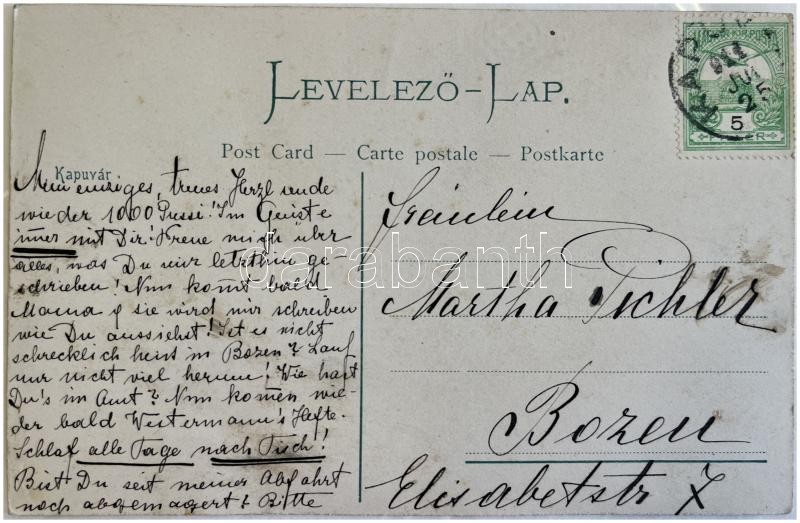 LEVELEZŐ-LAP.
Post Card — Carte postale — Postkarte
Kapuvár
Mein einziges, treues Herzl sende
wieder 1000 Pussi! Im Geiste
immer mit Dir! Freue mich über
alles, was Du mir letzthin ge-
schrieben! Nun komt bald
Mama & sie wird mir schreiben
wie Du aussiehst! Ist es nicht
schrecklich heiss in Bozen? Lauf
nur nicht viel herum! Wie hast
Du's im Amt? Nun komen wie-
der bald Westermann's Hefte.
Schlaf alle Tage nach Tisch!
Bist Du seit meiner Abfahrt
noch abgemagert? Bitte
Fräulein
Martha Pichler
Bozen
Elisabetstr 7
JUL
25
5
darabanth.com